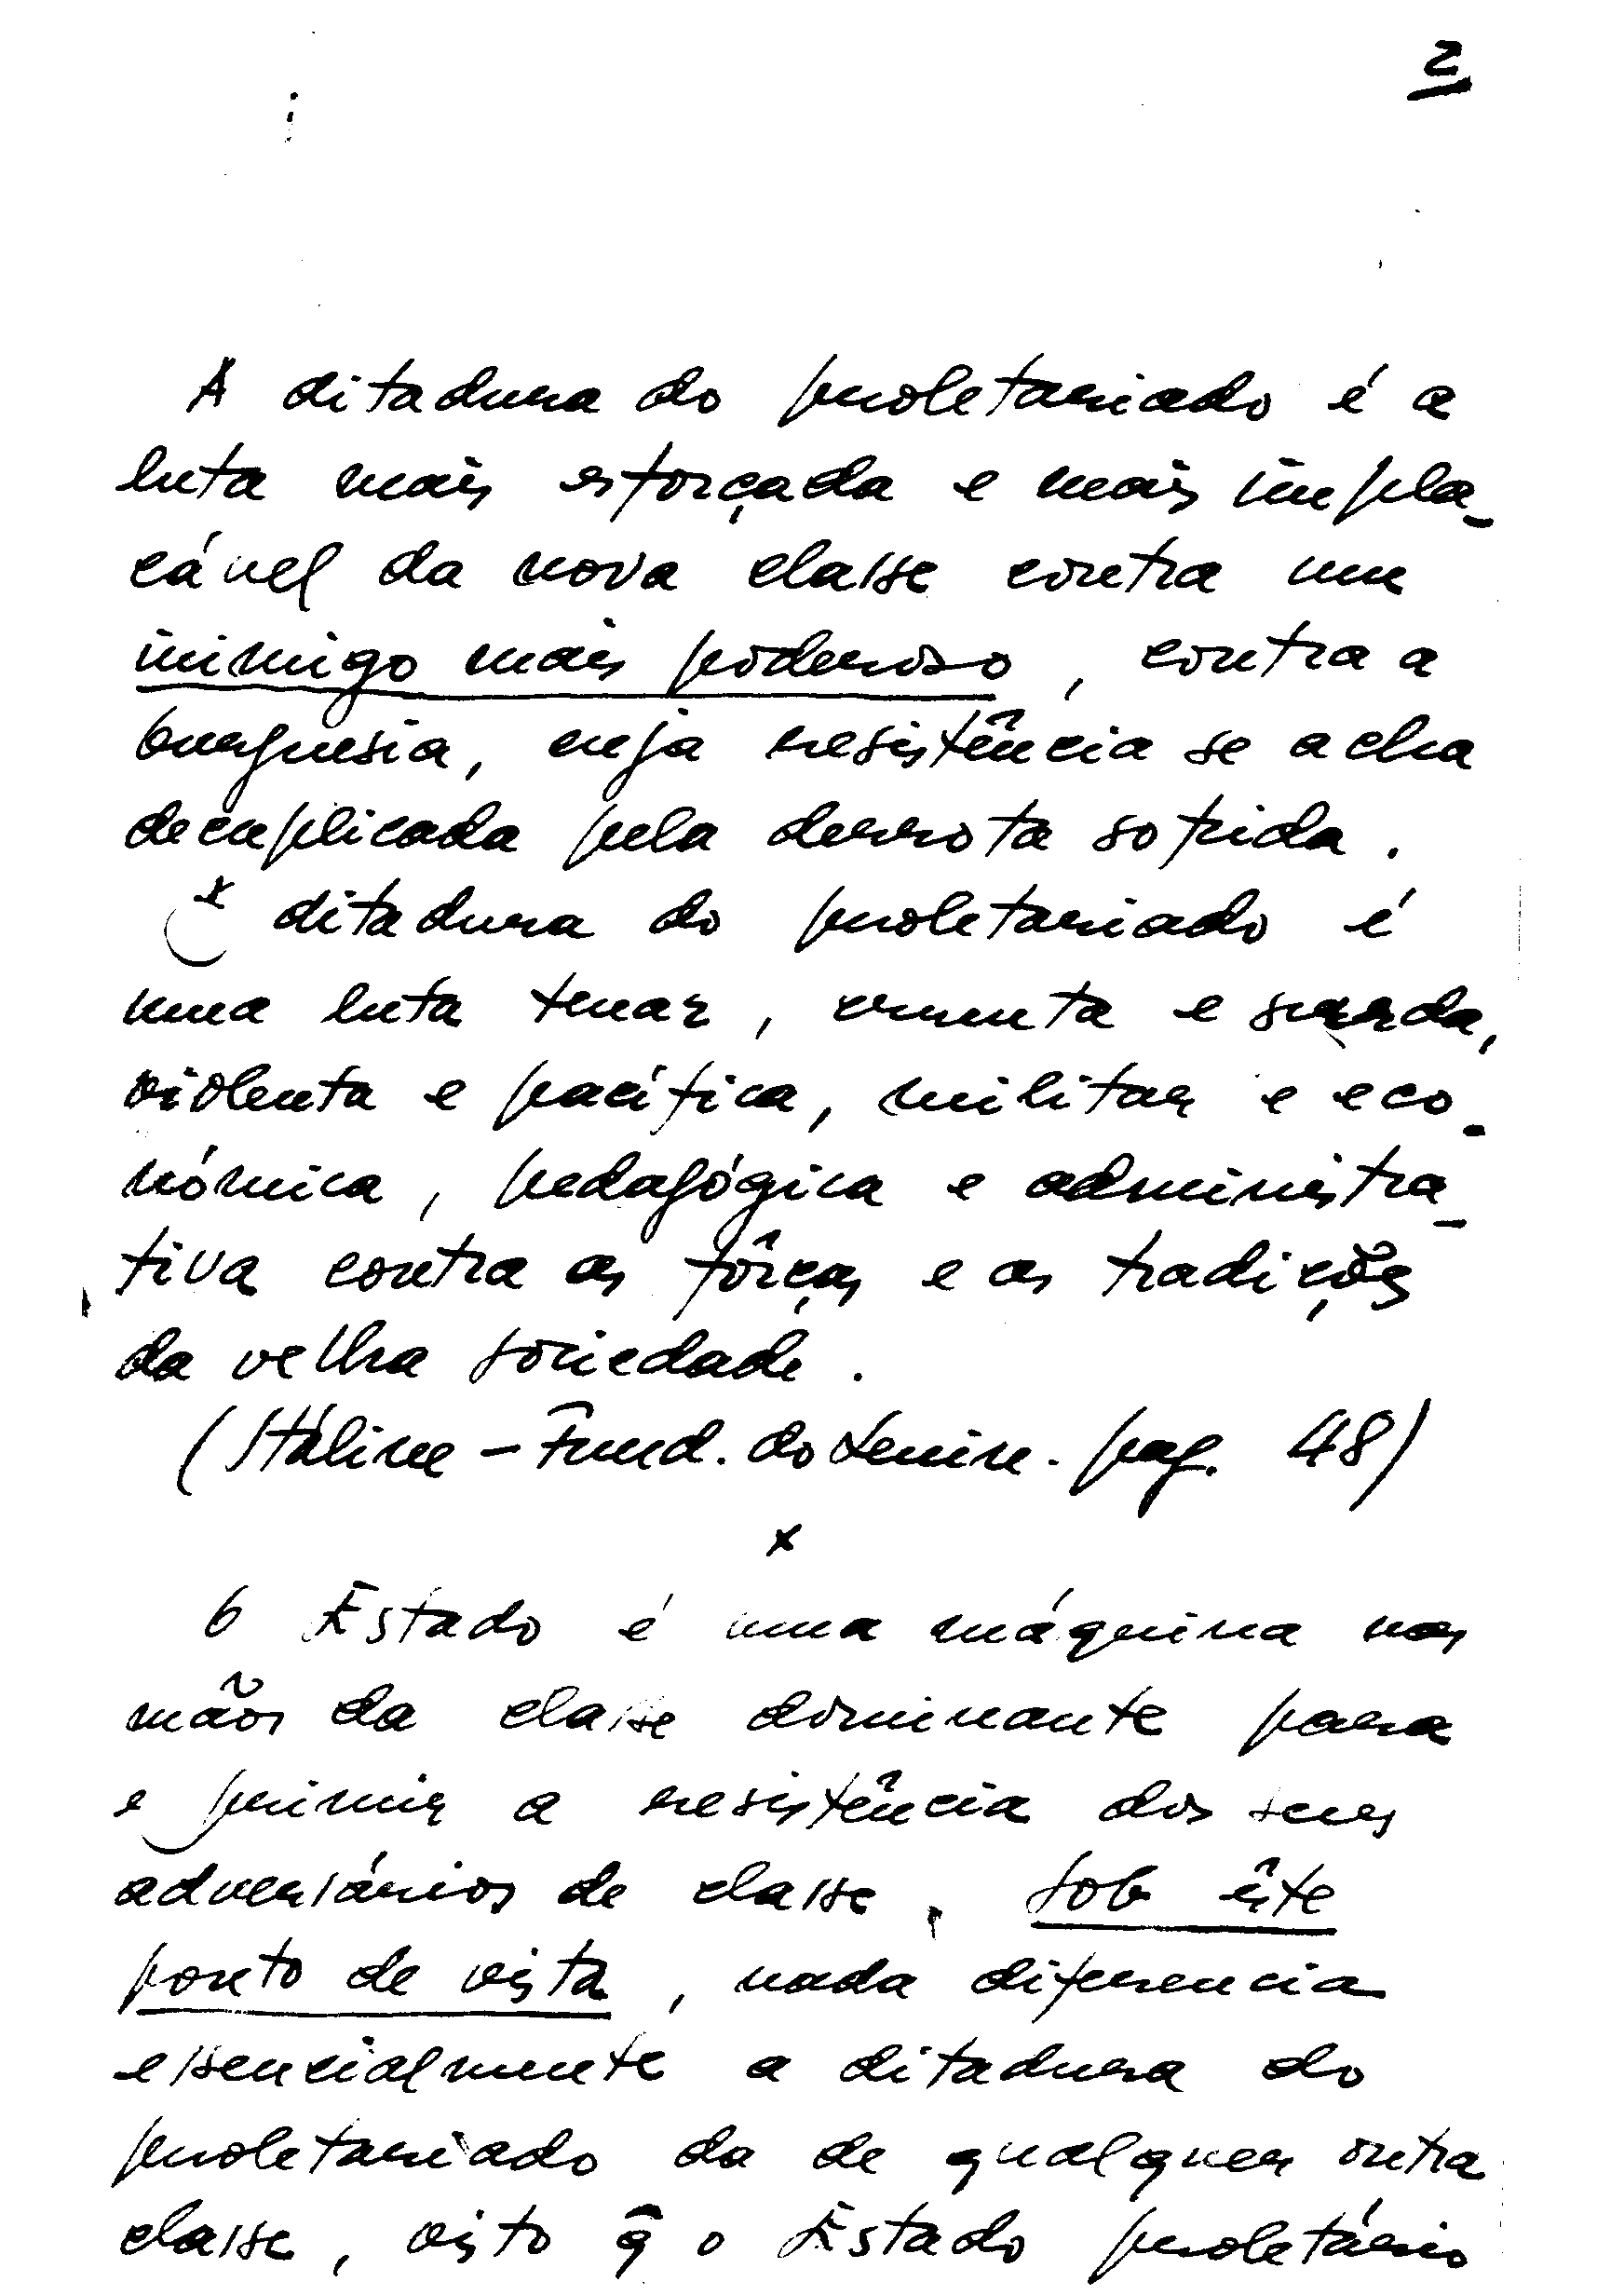 2
A ditadura do proletariado é a
luta mais esforçada e mais impla-
cável da nova classe contra um
inimigo mais poderoso, contra a
burguesia, cuja resistência se acha
decuplicada pela derrota sofrida.
A ditadura do proletariado é
uma luta tenaz, cruenta e surda,
violenta e pacífica, militar e eco-
nómica, pedagógica e administra-
tiva contra as fôrças e as tradições
da velha sociedade.
(Stáline - Fund. do Lenin. pag. 48)
x
O Estado é uma máquina nas
mãos da classe dominante para
eprimir a resistência dos seus
adversários de classe. Sob êste
ponto de vista, nada diferencia
essencialmente a ditadura do
proletariado da de qualquer outra
classe, visto q̂ o Estado proletário